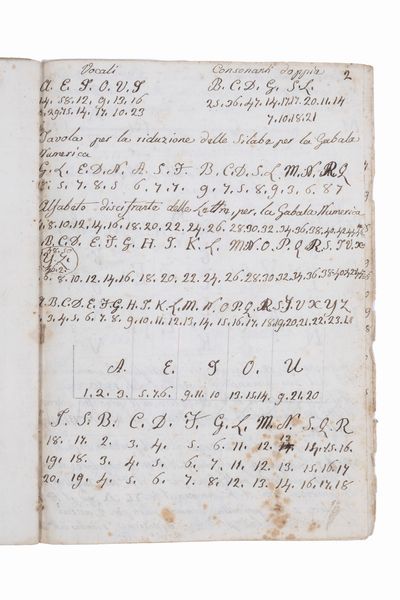 Vocali Consonanti doppie 2
A. E. I. O. V. I B. C. D. G. S. L.
14. 58. 12. 9. 13. 16 25. 36. 47. 14. 17.17. 20. 11. 14
15. 14. 17. 10. 23 7. 10. 18. 21
Tavola per la riduzione delle Silabe per la Gabala
Numerica
G. L. E. D. N. A. S. F. B. C. D. S. L. M. N. R Q
5. 7. 8. 5 6. 7. 7. 9. 7. 5. 8. 9. 3. 6. 8 7
Alfabeto discifrante delle Lettre, per la Gabala Numerica
8. 10. 12. 14. 16. 18. 20. 22. 24. 26. 28. 30. 32. 34. 36. 38.
B. C. D. E. F. G. H. I. K. L. M. N. O. P. Q. R. S. T. V. X
Y Z
6. 8. 10. 12. 14. 16. 18. 20. 22. 24. 26. 28. 30. 32. 34. 36. 38.
A. B. C. D. E. F. G. H. I. K. L. M. N. O P. Q. R. S. T. V X Y Z
3. 4. 5. 6. 7. 8. 9. 10. 11. 12. 13. 14. 15. 16. 17. 18. 19. 20. 21. 22. 23.
A. E. I O. U
1. 2. 3. 5. 7. 6. 9. 11. 10 13. 15. 14. 9. 21. 20
T. S. B. C. D. F. G. L. M. N. S. Q. R
18. 17. 2. 3. 4. 5. 6. 11. 12. 13 14. 15. 16.
19. 18. 3. 4. 5. 6. 7. 11. 12. 13. 15. 16. 17
20. 19. 4. 5. 6. 7. 8. 12. 13. 14. 16. 17. 18